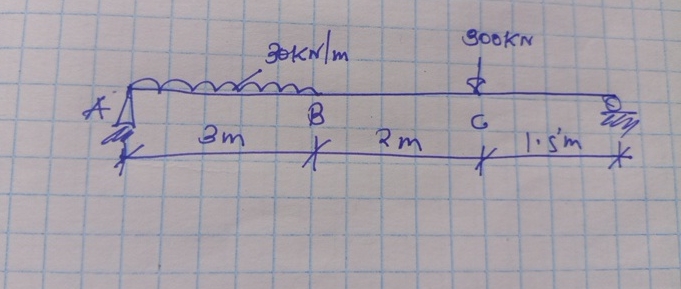 30KN/m
300KN
A
B
C
3m
2m
1.5m